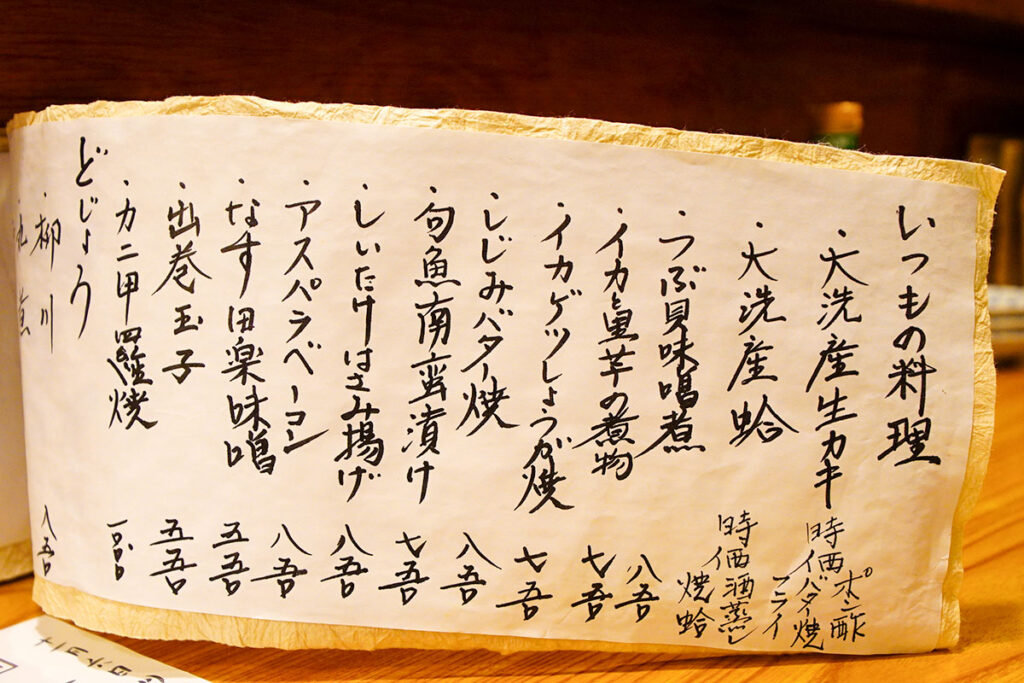 いつもの料理
・大洗産生カキ 時価 ポン酢
バター焼
フライ
・大洗産蛤 時価 酒蒸し
焼蛤
・つぶ貝味噌煮 八五〇
・イカと里芋の煮物 七五〇
・イカゲソしょうが焼 七五〇
・しじみバター焼 八五〇
・旬魚南蛮漬け 七五〇
・しいたけはさみ揚げ 八五〇
・アスパラベーコン 八五〇
・なす田楽味噌 五五〇
・出巻玉子 五五〇
・カニ甲羅焼
どじょう
・柳川 八五〇